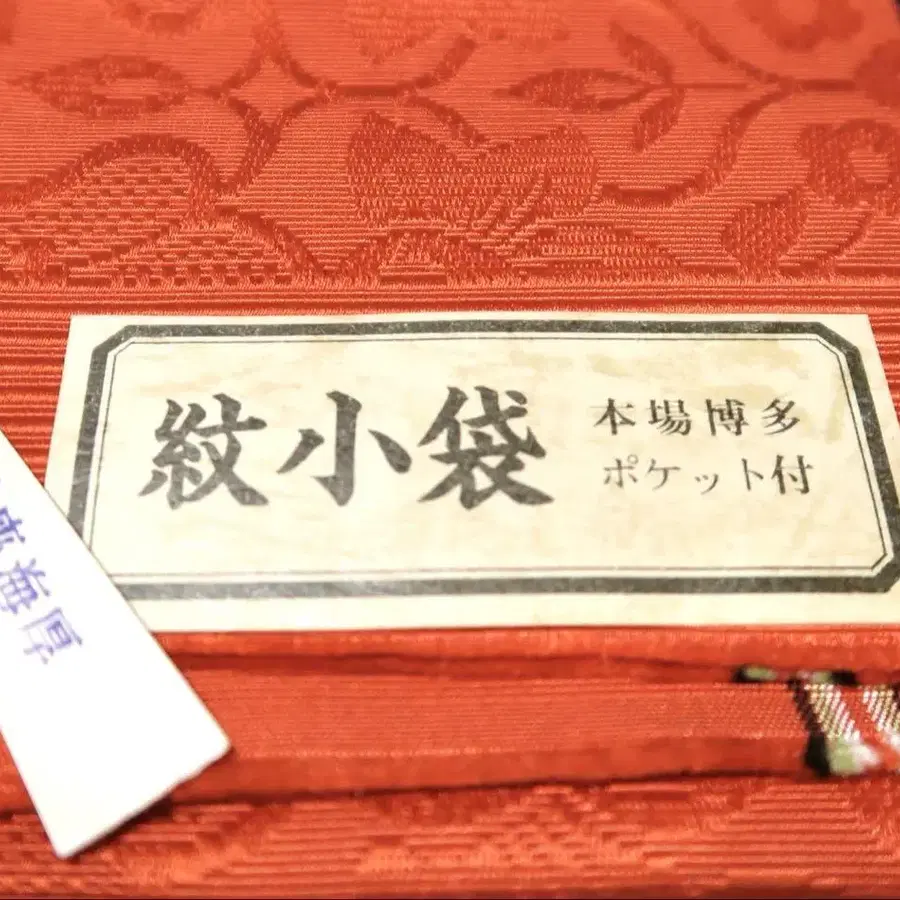 紋小袋
本場博多
ポケット付